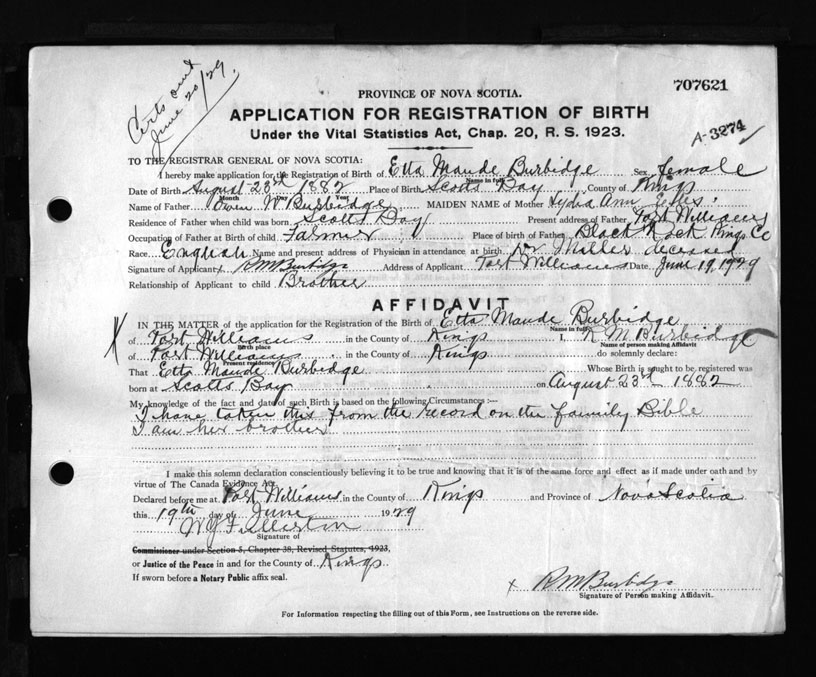 Certs sent
June 20/29.
707621
A-3274
PROVINCE OF NOVA SCOTIA.
APPLICATION FOR REGISTRATION OF BIRTH
Under the Vital Statistics Act, Chap. 20, R. S. 1923.
TO THE REGISTRAR GENERAL OF NOVA SCOTIA:
I hereby make application for the Registration of Birth of Etta Maude Burbidge Sex female
Name in full
Date of Birth August 23rd 1882 Place of Birth Scotts Bay County of Kings
Month Day Year
Name of Father Owen W Burbidge MAIDEN NAME of Mother Lydia Ann
Residence of Father when child was born Scotts Bay Present address of Father Port Williams
Occupation of Father at Birth of child Farmer Place of birth of Father Black Rock Kings Co
Race English Name and present address of Physician in attendance at birth Dr Miller decesed
Signature of Applicant x R M Burbidge Address of Applicant Port Williams Date June 19, 1929
Relationship of Applicant to child Brother
AFFIDAVIT
IN THE MATTER of the application for the Registration of the Birth of Etta Maude Burbidge
Name in full
of Port Williams in the County of Kings I, R M Burbidge
Birth place Name of person making Affidavit
of Port Williams in the County of Kings do solemnly declare:
Present residence
That Etta Maude Burbidge Whose Birth is sought to be registered was
born at Scotts Bay on August 23rd 1882
My knowledge of the fact and date of such Birth is based on the following Circumstances :—
I have taken this from the record on the family Bible
I am her brother
I make this solemn declaration conscientiously believing it to be true and knowing that it is of the same force and effect as if made under oath and by
virtue of The Canada Evidence Act.
Declared before me at Port Williams in the County of Kings and Province of Nova Scotia
this 19th day of June 1929
Signature of
Commissioner under Section 5, Chapter 38, Revised Statutes, 1923,
or Justice of the Peace in and for the County of Kings
If sworn before a Notary Public affix seal.
x R M Burbidge
Signature of Person making Affidavit.
For Information respecting the filling out of this Form, see Instructions on the reverse side.